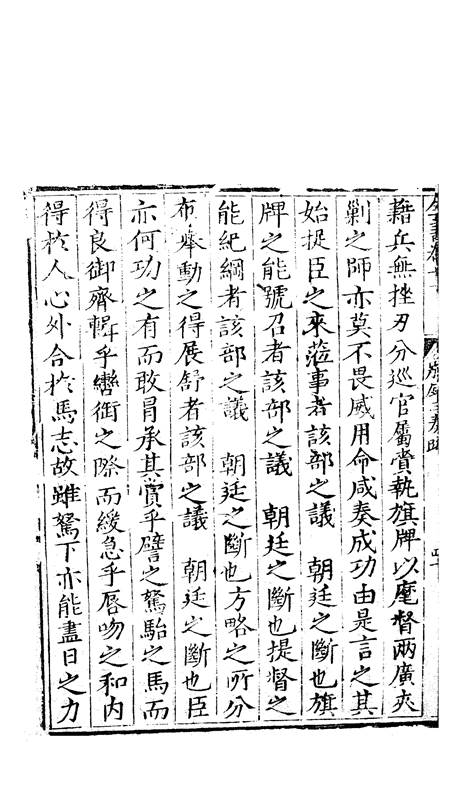 藉兵無挫刃分巡官屬賫執旗牌以麾督兩廣夾
剿之師亦莫不畏威用命咸奏成功由是言之其
始捉臣之來蒞事者該部之議　朝廷之斷也旗
牌之能號召者該部之議　朝廷之斷也提督之
能紀綱者該部之議　朝廷之斷也方略之所分
布舉動之得展舒者該部之議　朝廷之斷也臣
亦何功之有而敢冐承其賞乎譬之駑駘之馬而
得良御齊輯乎轡銜之際而緩急乎唇吻之和内
得於人心外合於馬志故雖駑下亦能盡日之力